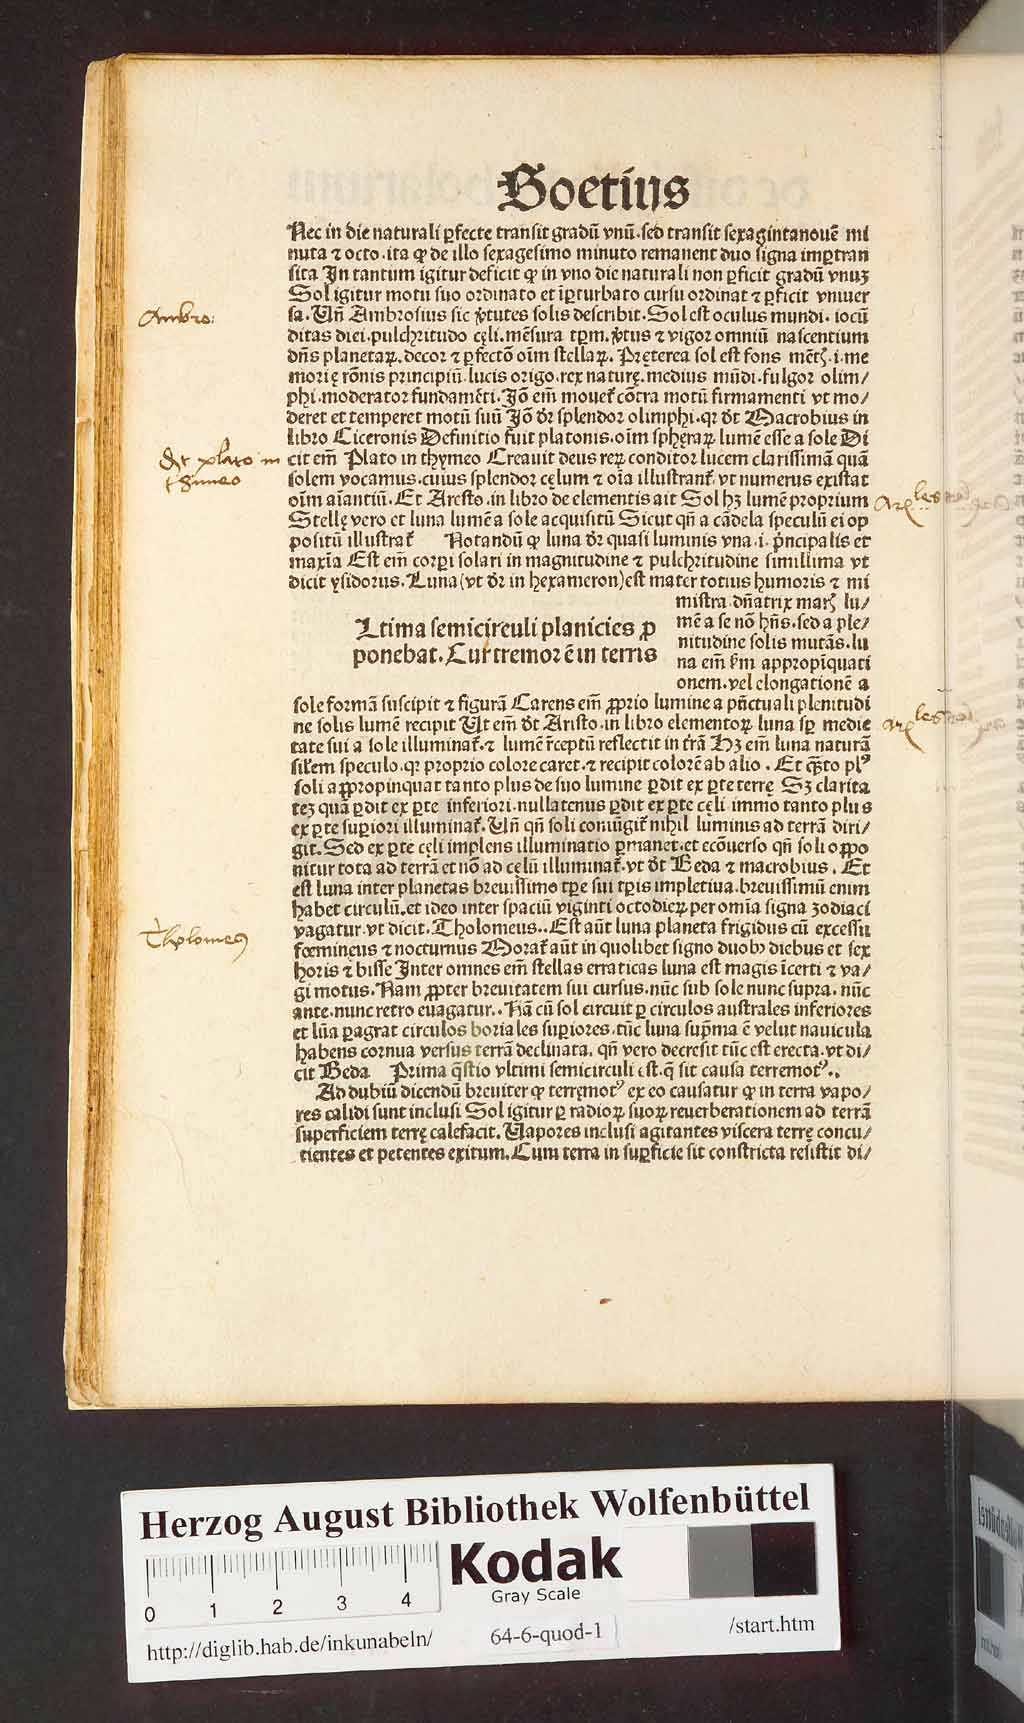 Boetius
Nec in die naturali ꝑfecte transit gradū vnū. sed transit sexagintanouē mi
nuta ⁊ octo. ita ꝙ de illo sexagesimo minuto remanent duo signa imꝑtran
sita In tantum igitur deficit ꝙ in vno die naturali non ꝑficit gradū vnuꝫ
Sol igitur motu suo ordinato et īꝑturbato cursu ordinat ⁊ ꝑficit vniuer
sa. Vñ Ambrosius sic v̓tutes solis describit. Sol est oculus mundi. iocū
ditas diei. pulchritudo cęli. mēsura tꝑm. v̓tus ⁊ vigor omniū nascentium
dñs planetaꝝ. decor ⁊ ꝑfectō oīm stellaꝝ. Pręterea sol est fons mēt. i. me
morię rōnis principiū. lucis origo. rex naturę. medius mūdi. fulgor olim/
phi. moderator fundamēti. Jō em̄ mouet cōtra motū firmamenti vt mo/
deret et temperet motū suū Jō dr̄ splendor olimphi. qꝛ dt̄ Macrobius in
libro Ciceronis Definitio fuit platonis. oīm sphęraꝝ lumē esse a sole Di
cit em̄ Plato in thymeo Creauit deus reꝝ conditor lucem clarissimā quā
solem vocamus. cuius splendor cęlum ⁊ oīa illustrant. vt numerus existat
oīm aīantiū. Et Aresto. in libro de elementis ait Sol hꝫ lumē proprium
Stellę vero et luna lumē a sole acquisitū Sicut qn̄ a cādela speculū ei op
positū illustrat̄ Notandū ꝙ luna dr̄ quasi luminis vna. i. pͥncipalis et
maxīa Est em̄ corꝑi solari in magnitudine ⁊ pulchritudine simillima vt
dicit ysidorus. Luna (vt dr̄ in hexameron) est mater totius humoris ⁊ mi
mistra. dn̄atrix mar. lu/
mē a se nō hn̄s. sed a ple/
nitudine solis mutās. lu
na em̄ s̄m appropīquati
onem. vel elongationē a
Ltima semicirculi planicies ꝓ
ponebat. Cur tremor ē in terris
sole formā suscipit ⁊ figurā Carens em̄ ꝓprio lumine a pūctuali plenitudi
ne solis lumē recipit Vt em̄ dt̄ Aristo. in libro elementoꝝ luna sꝑ medie
tate sui a sole illuminat̄. ⁊ lumē r̄ceptū reflectit in tr̄ā Hꝫ em̄ luna naturā
sil̄em speculo. qꝛ proprio colore caret. ⁊ recipit colorē ab alio. Et qͣto plꝰ
soli aꝓpropinquat tanto plus de suo lumine ꝑdit ex ꝑte terre Sꝫ clarita
teꝫ quā ꝑdit ex ꝑte inferiori. nullatenus ꝑdit ex ꝑte cęli. immo tanto plus
ex ꝑte suꝑiori illuminat̄. Vñ qn̄ soli coniūgit̄ nihil luminis ad terrā diri/
git. Sed ex ꝑte cęli implens illuminatio ꝑmanet. et ecōuerso qn̄ soli oppo
nitur tota ad terrā et nō ad cęlū illuminat̄. vt dt̄ Beda ⁊ macrobius. Et
est luna inter planetas breuissimo tꝑe sui tꝑis impletiua. breuissimū enim
habet circulū. et ideo inter spaciū viginti octodieꝝ per omīa signa zodiaci
vagatur. vt dicit. Tholomeus.. Est aūt luna planeta frigidus cū excessu
fœmineus ⁊ nocturnus Morat̄ aūt in quolibet signo duobꝰ diebus et sex
horis ⁊ bisse Inter omnes em̄ stellas erraticas luna est magis īcerti ⁊ va/
gi motus. Nam ꝓpter breuitatem sui cursus. nūc sub sole nunc supra. nūc
ante. nunc retro euagatur.. Nā cū sol circuit ꝑ circulos australes inferiores
et lūa ꝑagrat circulos boriales suꝑiores. tūc luna supͥma ē velut nauicula
habens cornua versus terrā declinata. qn̄ vero decresit tūc est erecta. vt di/
cit Beda Prima qͥstio vltimi semicirculi est. q̄ sit causa terremotꝰ..
Ad dubiū dicendū breuiter ꝙ terręmotꝰ ex eo causatur ꝙ in terra vapo/
res calidi sunt inclusi Sol igitur ꝑ radioꝝ suoꝝ reuerberationem ad terrā
superficiem terrę calefacit. Vapores inclusi agitantes viscera terrę concu/
tientes et petentes exitum. Cum terra in suꝑficie sit constricta resistit di/
Ambro:
dt plato in
thimeo
Tholomeꝰ
Herzog August Bibliothek Wolfenbüttel
Kodak
Gray Scale
0 1 2 3 4
http://diglib.hab.de/inkunabeln/ 64-6-quod-1 /start.htm